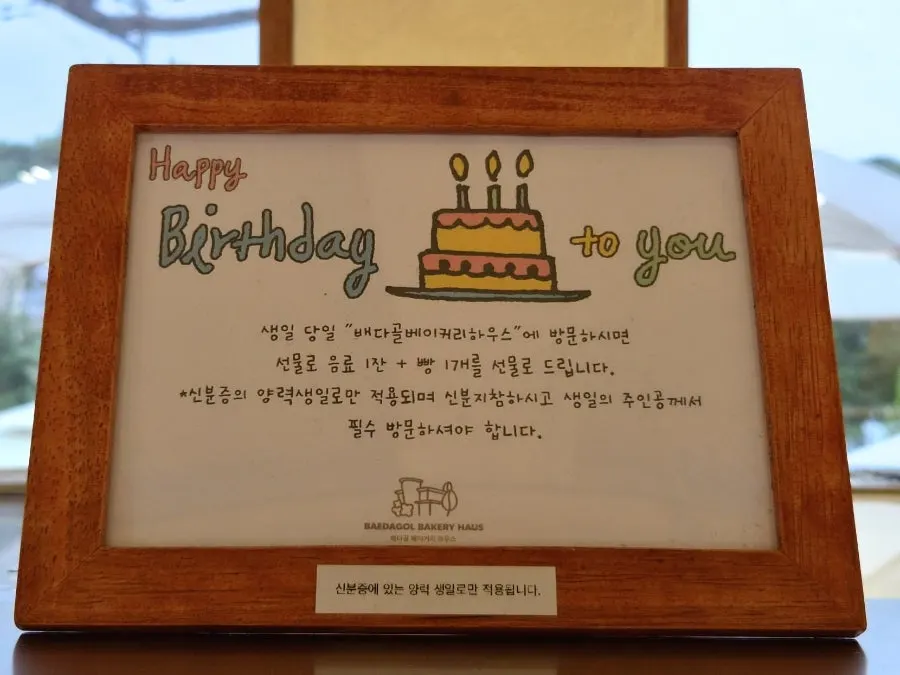 Happy
Birthday to you
생일 당일 "배다골베이커리하우스"에 방문하시면
선물로 음료 1잔 + 빵 1개를 선물로 드립니다.
*신분증의 양력생일로만 적용되며 신분지참하시고 생일의 주인공께서
필수 방문하셔야 합니다.
BAEDAGOL BAKERY HAUS
배다골 베이커리 하우스
신분증에 있는 양력 생일로만 적용됩니다.